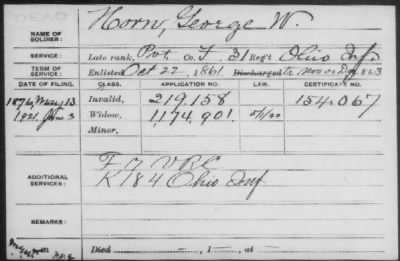 DEAD
NAME OF SOLDIER: Horn, George W.
SERVICE: Late rank, Pvt. Co. F, 31 Reg't Ohio Inf.
TERM OF SERVICE: Enlisted Oct 22, 1861 Discharged 1863
DATE OF FILING. CLASS. APPLICATION NO. LAW. CERTIFICATE NO.
1876, May 13 Invalid, 219,158 154,067
1921, Jan 3 Widow, 1174,901
Minor,
ADDITIONAL SERVICES: F 7 VRC
K 184 Ohio Inf
REMARKS:
Died —, 1—, at —